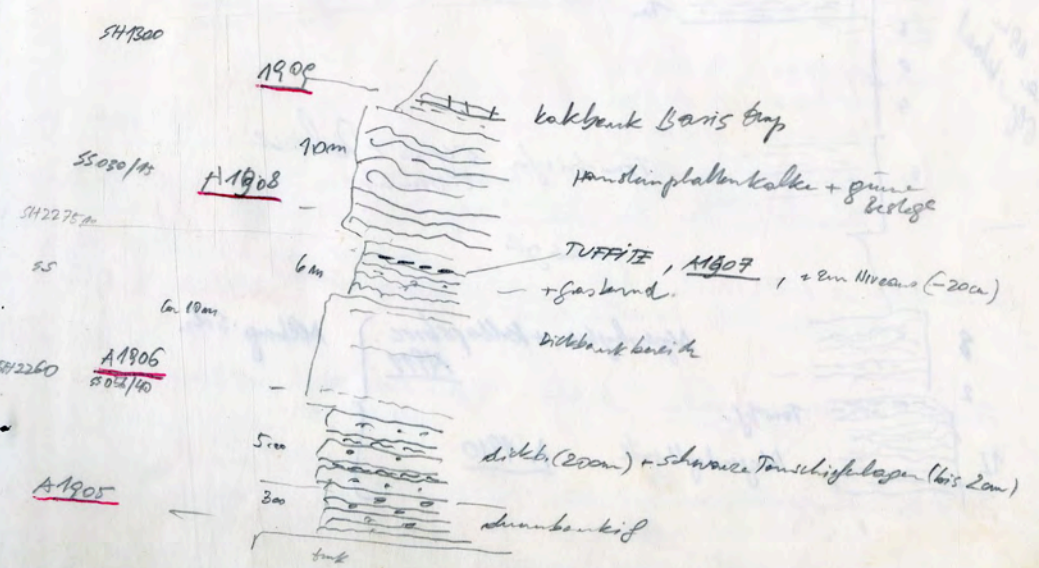 SH1300
1909
kalkbank Basis
10m
SS030/15
A1908
Hornsteinplattenkalke + grüne
Beläge
SH2275m
6m
TUFFITE, A1907, + 2m Niveau (-20cm)
SS
ca 10m
Dickbankbereich
A1906
SH2260
SS056/40
5m
dickb. (20cm) + schwarze Tonschieferlagen (bis 2cm)
A1905
300
dünnbankig